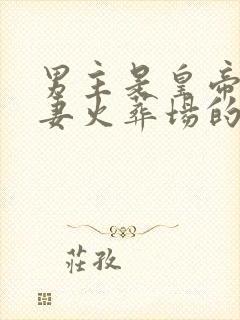 男主是皇帝
妻火葬場的
莊孜